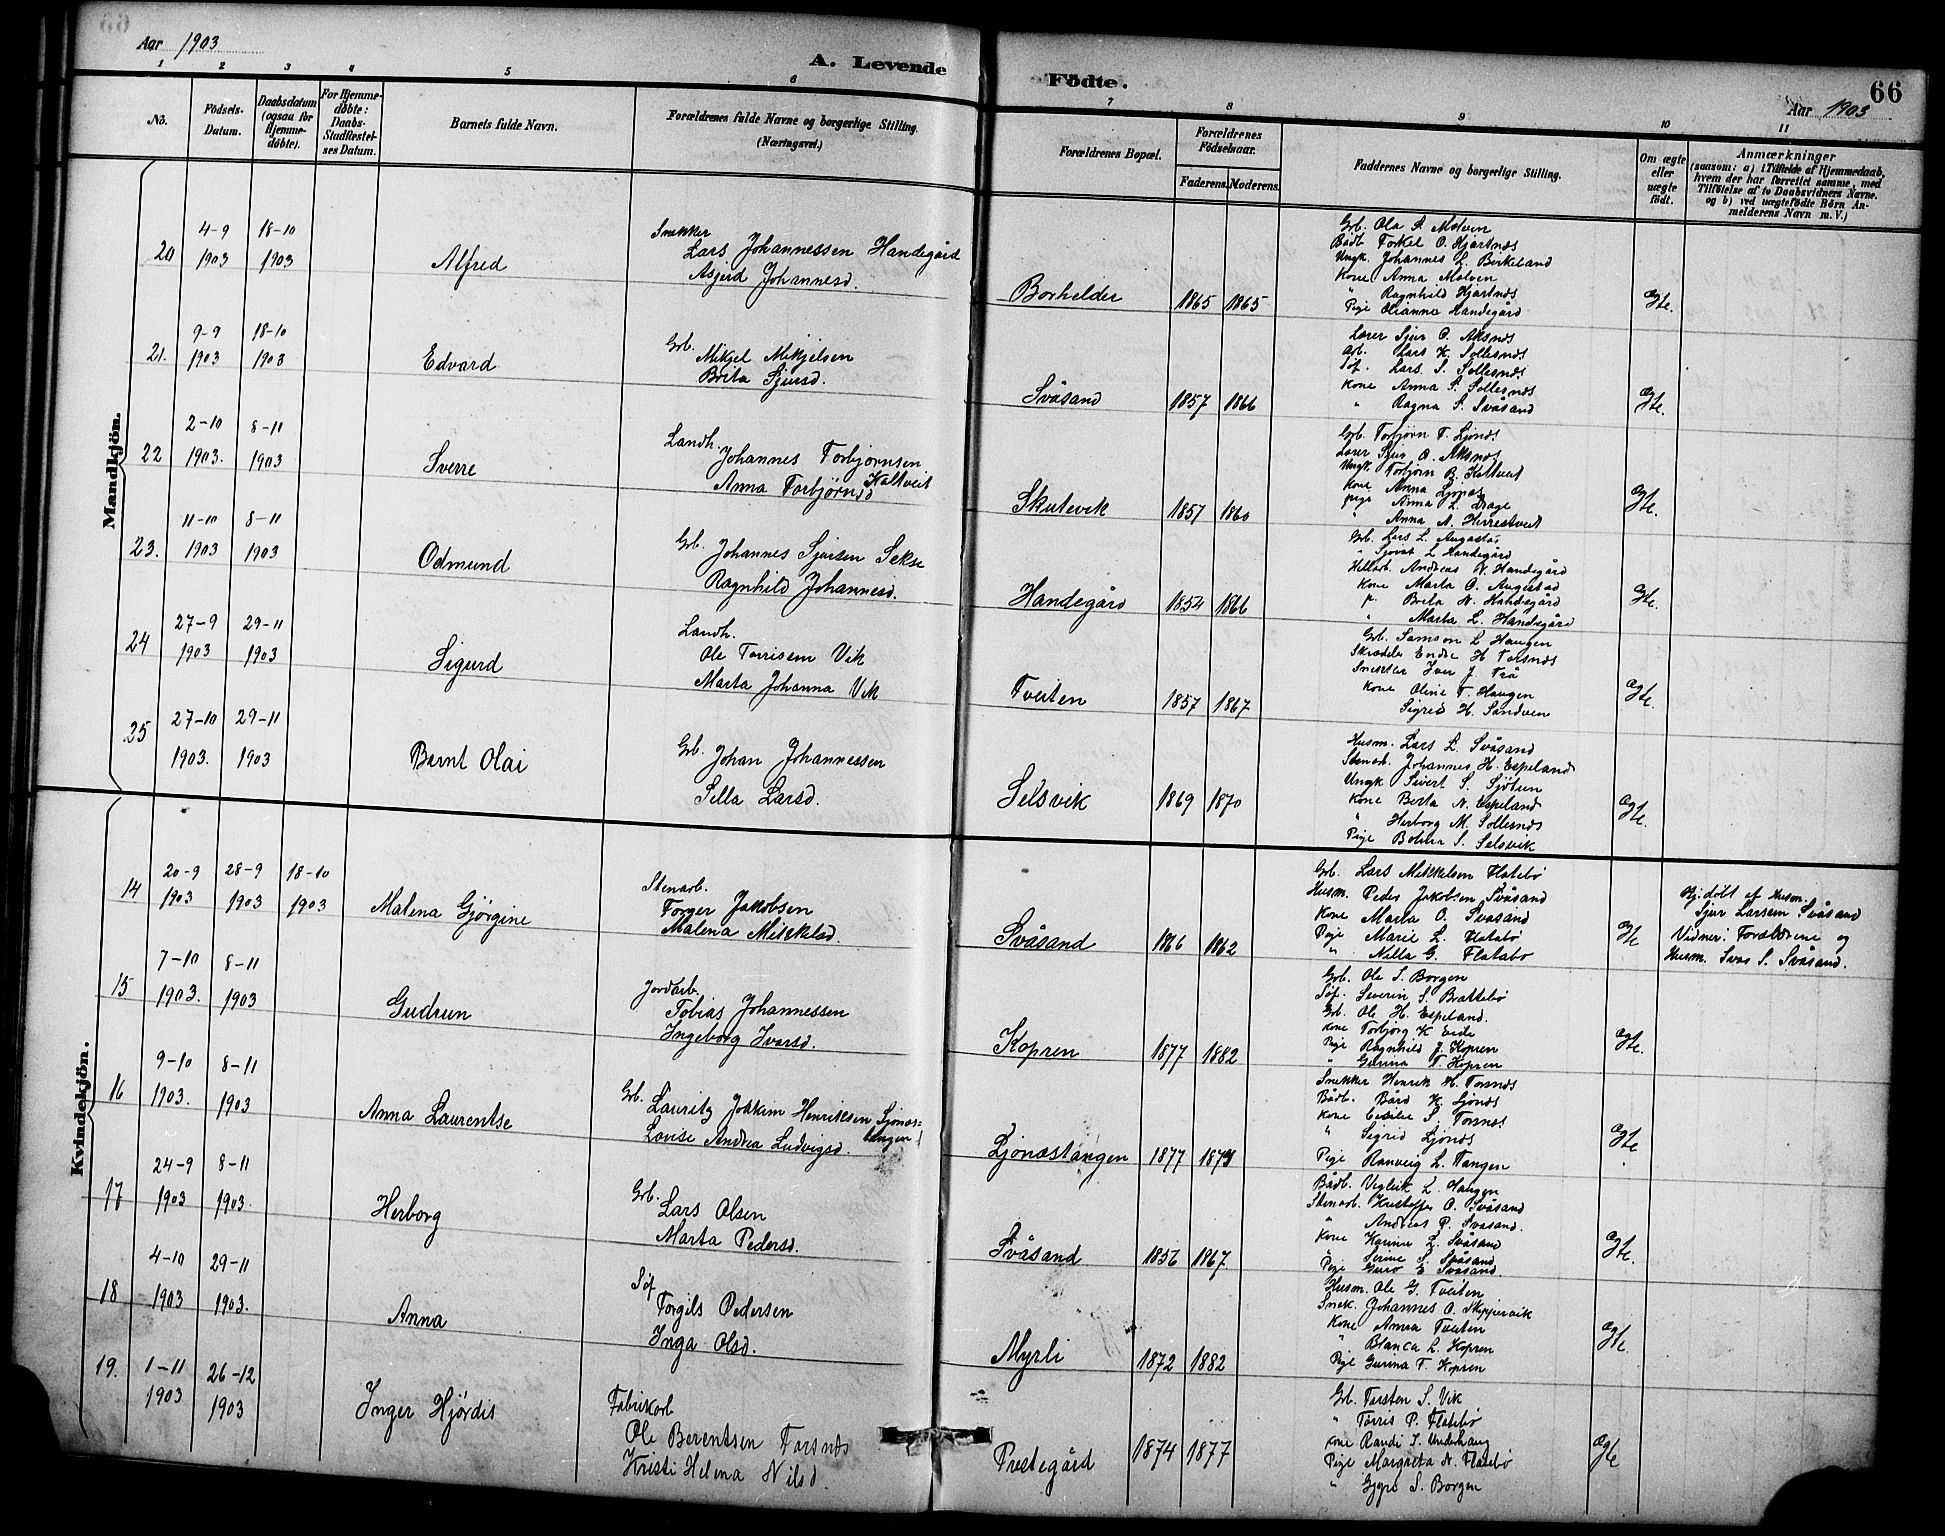 Aar 1903
A. Levende Födte.
66
Aar 1903
1 2 3 4 5 6 7 8 9 10 11
No.
Födsels-
Datum.
Daabsdatum
(ogsaa for
Hjemme-
døbte).
For Hjemme-
døbte:
Daabs-
Stadfæstel-
ses Datum.
Barnets fulde Navn.
Forældrenes fulde Navne og borgerlige Stilling.
(Næringsvei.)
Forældrenes Bopæl.
Forældrenes
Födselsaar.
Faderens.
Moderens.
Faddernes Navne og borgerlige Stilling.
Om ægte
eller
uægte
født.
Anmærkninger
(saasom: a) i Tilfælde af Hjemmedaab,
hvem der har forrettet samme, med
Tilföielse af to Daabsvidners Navne.
og b) ved uægtefödte Börn An-
melderens Navn m. V.)
Mandkjön.
20
4-9
1903
18-10
1903
Alfred
Snekker
Lars Johannessen Handegård
Asjerd Johannesd.
Borhelder
1865
1865
Grb. Ola A. Molven
Bådb Torkel O. Hjartnæs
Ungk. Johannes L. Birkeland
Kone Anna Molven
" Ragnhild Hjartnæs
Pige Olianna Handegård
Ægte.
21.
9-9
1903
18-10
1903
Edvard
Grb.
Mikjel Mikjelsen
Brita Sjursd.
Svåsand
1857
1866
Lærer Sjur O. Aksnæs
Arb. Lars K. Sollesnæs
Søf. Lars S. Sollesnæs
Kone Anna S. Sollesnæs
" Ragna S. Svåsand
Ægte.
22
2-10
1903.
8-11
1903
Sverre
Landh.
Johannes Torbjørnsen
Kaltveit
Anna Torbjørnsd
Skutevik
1857
1860
Grb. Torbjørn T. Ljonæs
Lærer Sjur O. Aksnæs
Ungk. Torbjørn B. Kaltveit
Kone Anna Ljonæs
pige Anna L. Drage
" Anna N. Herrestveit
Ægte.
23.
11-10
1903
8-11
1903
Odmund
Grb. Johannes Sjursen Sekse
Ragnhild Johannesd.
Handegård
1854
1866
Grb. Lars L. Augastad
" Sjovat L Handegård
Andreas N. Handegård
Kone Marta O. Augestad
p. Brita N. Handegård
" Marta L. Handegård
Ægte.
24
27-9
1903
29-11
1903
Sigurd
Landh.
Ole Torrisen Vik
Marta Johanna Vik
Tveiten
1857
1867
Grb. Samson L Haugen
Skrædder Endre H Torsnæs
Snekker Iver J. Trå
Kone Oline T. Haugen
Sigrid H. Sandven
Ægte.
25
27-10
1903.
29-11
1903
Barnt Olai
Grb. Johan Johannessen
Sella Larsd.
Selsvik
1869
1870
Husm. Lars L. Svåsand
Stenarb. Johannes H. Espeland
Ungk Sivert S. Sjötun
Kone Berta N. Espeland
" Herborg M. Sollesnæs
Pige S. Selsvik
Ægte.
Kvindekjön.
14
20-9
1903
28-9
1903
18-10
1903
Malena Gjørgine
Stenarb.
Torger Jakobsen
Malena Mikkelsd.
Svåsand
1866
1862
Grb. Lars Mikkelsen Flatebø
Husm. Peder Jakobsen Svåsand
Kone Marta O. Svåsand
Pige Marie L. Flatabø
" Nilla G. Flatabø
Ægte
Hj. døbt af Husm.
Sjur Larsen Svåsand
Vidner: Forældrene og
Husm. Svas S. Svåsand.
15
7-10
1903.
8-11
1903
Gudrun
Jordarb.
Tobias Johannessen
Ingeborg Ivarsd.
Kopren
1877
1882
Grb. Ole S. Borgen
Søf. Severin S. Brattebø
Grb. Ole H. Espeland.
Kone Torbjørg K Eide
Pige Ragnhild J. Kopren
" Gurina T. Kopren
Ægte.
16
9-10
1903.
8-11
1903
Anna Laurentse
Grb. Lauritz Joakim Henriksen Ljonæs=
tangen
Lovise Andrea Ludvigsd.
Ljonæstangen
1877
Snekker Henrik M. Torsnæs
Bådb. Bård K. Ljonæs
Kone Cecilie S. Torsnæs
" Sigrid Ljonæs
Pige Ranveig L. Tangen
Ægte
17
24-9
1903
8-11
1903.
Herborg
Grb.
Lars Olsen
Marta Pedersd.
Svåsand
1856
1867.
Bådb. Viglik L. Haugen
Stenarb. Kristoffer O. Svåsand
" Andreas P. Svåsand.
Kone Karina L. Svåsand
" Serine S. Svåsand
Pige Guro E. Svåsand.
Ægte.
18
4-10
1903
29-11
1903.
Anna
Søf
Torgils Pedersen
Inga Olsd.
Myrli
1872
1882
Husm. Ole G. Tveiten
Snek. Johannes O. Skippervik
Kone Anna Tveiten
" Blanca L. Kopren
Pige Gurina T. Kopren
Ægte.
19.
1-11
1903
26-12
1903
Inger Hjørdis
Fabrikarb
Ole Berentsen Torsnæs
Kristi Helena Nilsd.
Prestegård
1874
1877
Grb. Torsten S. Vik
" Torris P. Flatebø
Kone Randi I. Underhaug
Pige Margreta N. Flatebø
" Gjyri S. Borgen
Ægte